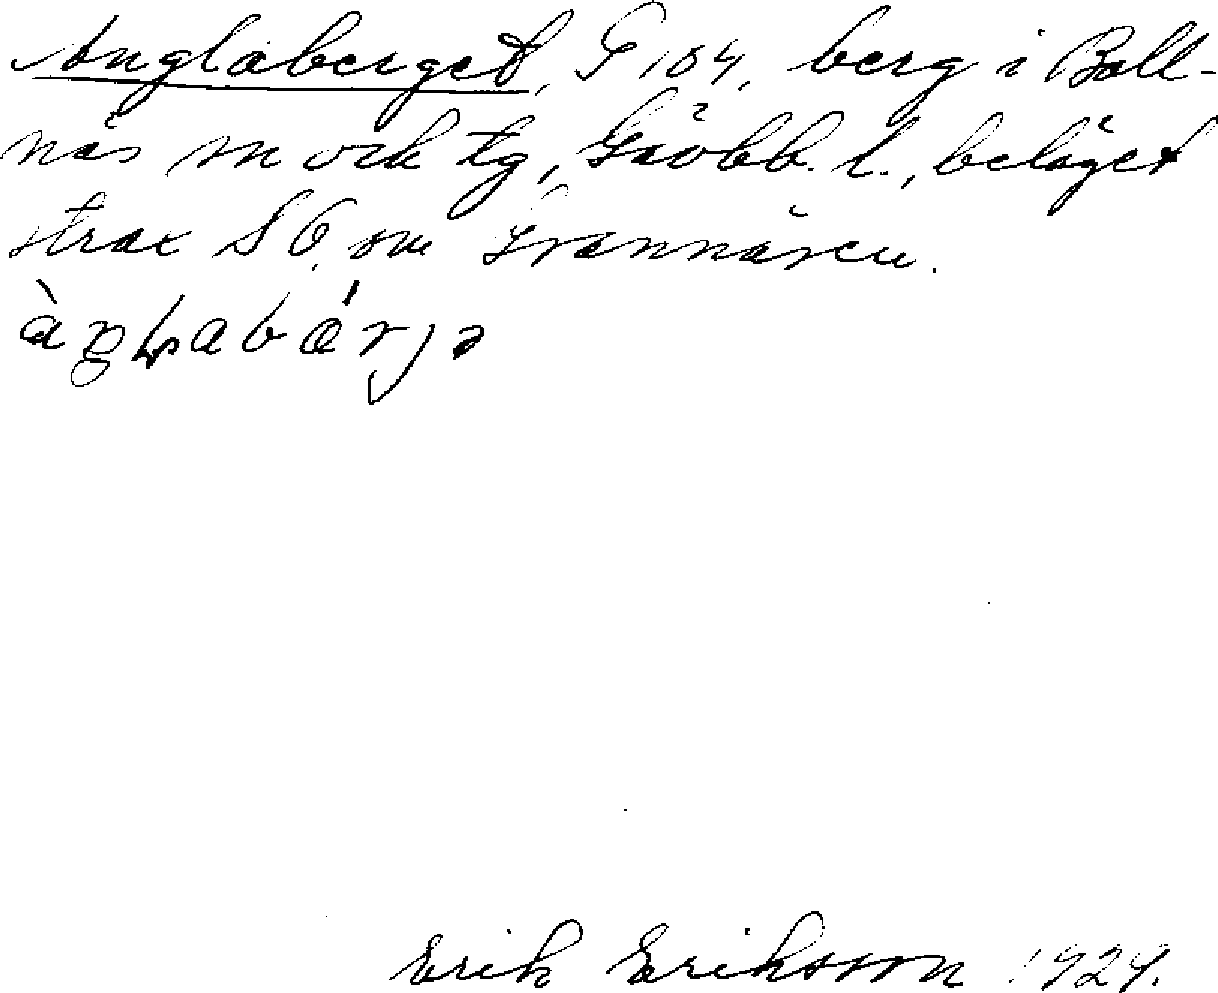 Anglaberget, G 104, berg i Boll-
näs sn och tg, Gävlb. l., beläget
strax SO. om Grannäsen.
Erik Eriksson 1929.